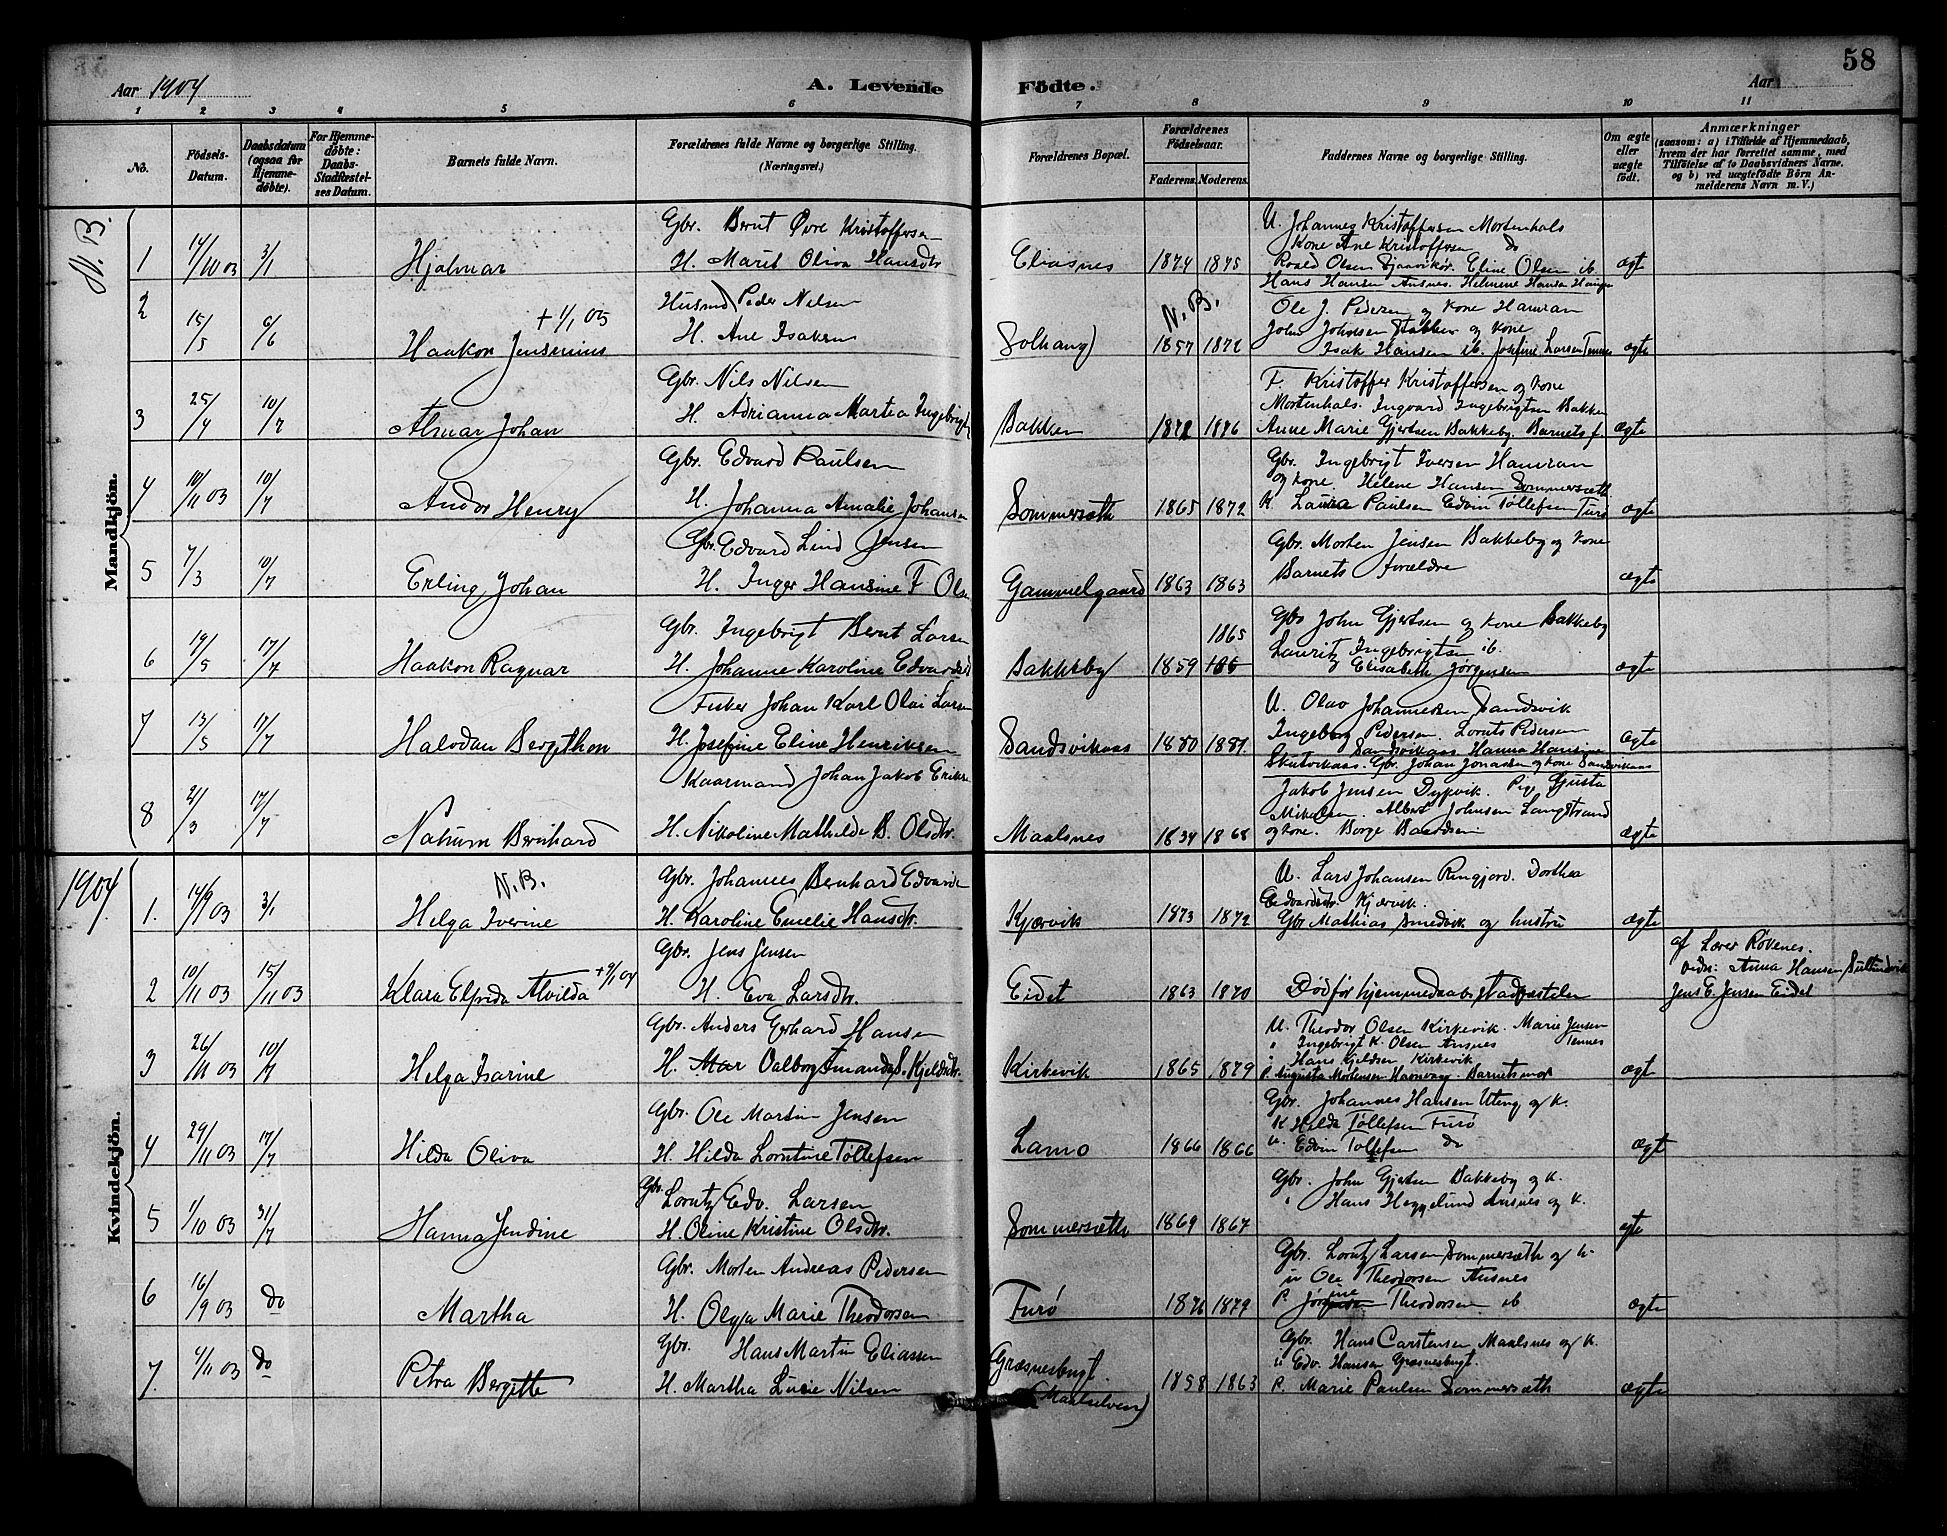 58
Aar 1904
A. Levende
Födte.
Aar
1 2 3 4 5 6 7 8 9 10 11
No.
Födsels-Datum.
Daabsdatum (ogsaa for Hjemme-döbte).
For Hjemme-döbte: Daabs-Stadfæstel-ses Datum.
Barnets fulde Navn.
Forældrenes fulde Navne og borgerlige Stilling.
(Næringsvei.)
Forældrenes Bopæl.
Forældrenes Födselsaar.
Faderens. Moderens.
Faddernes Navne og borgerlige Stilling.
Om ægte eller uægte födt.
Anmærkninger
(saasom: a) i Tilfælde af Hjemmedaab,
hvem der har forrettet samme, med
Tilföielse af to Daabsvidners Navne,
og b) ved uægtefödte Börn An-
melderens Navn m. V.)
Mandkjön.
N. B.
1 14/10 03 3/1 Hjalmar
Gbr. Bernt Øvre Kristoffersen
H. Marit Oliva Hansdtr
Eliasnes 1874 1875
U. Johannes Kristoffersen Mortenhals
Kone Ane Kristoffersen do
Roald Olsen Eline Olsen ib.
Hans Hansen Ansnes. Helmine Hansen
ægt
2 15/5 6/6 Haakon Jensenius + 1/1 05
Husmd Peder Nilsen
H. Ane Isaksen
Solhaug
N. B.
1857 1872
Ole J. Pedersen og Kone Hamran
John Johnsen Stakken og Kone
Isak Hansen ib. Josefine Larsen Tennes
ægte
3 25/4 10/7 Almar Johan
Gbr. Nils Nilsen
H. Adrianna Martea Ingebrigts
Bakken 1872 1876
F. Kristoffer Kristoffersen og Kone
Mortenhals. Ingvard Ingebrigtsen Bakken
Anne Marie Gjertsen Bakkeby. Barnets f.
ægte
4 10/11 03 10/7 Andor Henry
Gbr. Edvard Paulsen
H. Johanna Amalie Johansen
Sommersæth 1865 1872
Gbr. Ingebrigt Iversen Hamran
og Kone. Helene Hansen Sommersæth
K. Laura Paulsen Edvin Tøllefsen Furø
ægte
5 7/3 10/7 Erling Johan
Gbr. Edvard Lind Jensen
H. Inger Hansine F Olsen
Gammelgaard 1863 1863
Gbr. Morten Jensen Bakkeby og Kone
Barnets Forældre
ægte
6 19/5 17/7 Haakon Ragnar
Gbr. Ingebrigt Bernt Larsen
H. Johanne Karoline Edvardsd
Bakkeby 1859 1865
Gbr John Gjertsen og Kone Bakkeby
Lauritz Ingebrigtsen ib.
Elisabeth Jørgensen
ægte
7 13/5 17/7 Halvdan Bergithon
Fisker Johan Karl Olai Larsen
H. Josefine Eline Henriksen
Sandsvikaas 1880 1881
U. Olav Johannessen Sandsvik
Ingeborg Pedersen. Lornts Pedersen
Sandsvikaas Hanna Hansine
Skutvikaas. Gbr. Johan Jonassen og Kone Sandvikaas
ægte
8 21/3 17/7 Nahum Bernhard
Kaarmand Johan Jakob Eriksen
H. Nikoline Mathilde B. Olsdtr.
Maalsnes 1834 1868
Jakob Jensen Dypvik. Pige Gjusta
Mikalsen. Albert Johnsen Langstrand
og Kone. Borge Baardsen
ægte
Kvindekjön.
1904
1. 14/9 03 3/1 Helga Iverine
N. B.
Gbr. Johannes Bernhard Edvards
H. Karoline Emelie Hansdtr.
Kjærvik 1873 1872
U. Lars Johansen Ringjord. Dorthea
Edvardsdtr. Kjærvik.
Gbr Mathias Smedvik og hustru
ægte
2 10/11 03 15/11 03 Klara Elfrida Alvilda + 9/1 04
Gbr. Jens Jensen
H. Eva Larsdtr.
Eidet 1863 1870
Død før hjemmedaabs stadfæstelse
af Lærer Røvenes.
Vidn: Anna Hansen
Jens E. Jensen Eidet
3 26/11 03 10/7 Helga Isarine
Gbr. Anders Gerhard Hansen
H. Mar Valborg Amanda S. Kjeldsdtr.
Kirkevik 1865 1879
U. Theodor Olsen Kirkevik. Marie Jensen
" Ingebrigt K. Olsen Ansnes Tennes
" Hans Kjeldsen Kirkevik
P. Augusta Mortensen Havnvaag. Barnets mor
ægt
4 29/11 03 17/7 Hilda Oliva
Gbr. Ole Martin Jensen
H. Hilda Lorntine Tøllefsen
Lamo 1866 1866
Gbr. Johannes Hansen Uteng og K.
K Hilda Tøllefsen Furø
U. Edvin Tøllefsen do
ægt
5 1/10 03 31/7 Hanna Jendine
Gbr. Lorntz Edv. Larsen
H. Oline Kristine Olsdtr.
Sommersæth 1869 1867
Gbr. John Gjertsen Bakkeby og K.
" Hans Heggelund Ansnes og K.
ægte
6 16/9 03 do Martha
Gbr. Morten Andreas Pedersen
H. Olga Marie Theodorsen
Furø 1876 1879
Gbr. Lorntz Larsen Sommersæth og K.
U Ole Theodorsen Ansnes
P. Jørgine Theodorsen ib
ægte
7. 4/11 03 do Petra Bergitte
Gbr. Hans Martin Eliassen
H. Martha Lucie Nilsen
Græsnesbugt.
(Maalselven)
1858 1863
Gbr. Hans Carstensen Maalsnes og K.
U Edv. Hansen Græsnesbugt.
P. Marie Paulsen Sommersæth
ægte